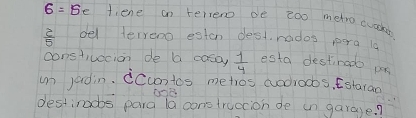 6 = Se tiene un terreno de 200 metro cuadra
2/5 del terreno estan destinados para la
construccion de la casa, 1/4 esta destinado par
un jardin. ¿Cuantos metros cuadrados, Estaran
destinados para la construccion de un garaje?